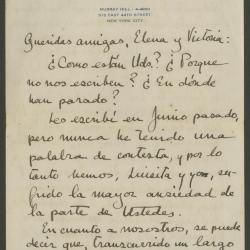 MURRAY HILL · 4-8060
315 EAST 44TH STREET
NEW YORK CITY
Queridas amigas, Elena y Victoria:
¿Como están Uds? ¿Porque
no nos escriben? ¿En dónde
han parado?
Les escribé en Junio pasado,
pero nunca he tenido una
palabra de contesta, y por lo
tanto hemos, Luisita y yo, su-
frido la mayor ansiedad de
la parte de Ustedes.
En cuanto a nosotros, se puede
decir que, transcurrido un largo